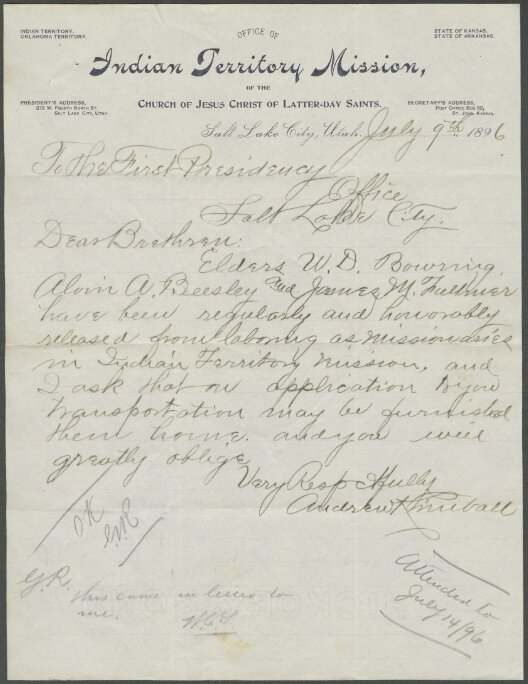 INDIAN TERRITORY.
OKLAHOMA TERRITORY.
OFFICE OF
STATE OF KANSAS.
STATE OF ARKANSAS.
Indian Territory Mission,
OF THE
CHURCH OF JESUS CHRIST OF LATTER-DAY SAINTS.
PRESIDENT'S ADDRESS,
375 W. FOURTH NORTH ST.
SALT LAKE CITY, UTAH
SECRETARY'S ADDRESS,
POST OFFICE BOX 95,
ST. JOHN, KANSAS.
Salt Lake City, Utah, July 9th 1896
To The First Presidency
Office
Salt Lake City.
Dear Brethren:
Elders W. D. Bowring,
Alvin A. Beesley and James M. Fulmer
have been regularly and honorably
released from laboring as missionaries
in Indian Territory Mission, and
I ask that on application to you
transportation may be furnished
them home. and you will
greatly oblige
Very Respectfully
Andrew Kimball
OK
G.R.
this came in letter to
me.
Attended to
July 14/96